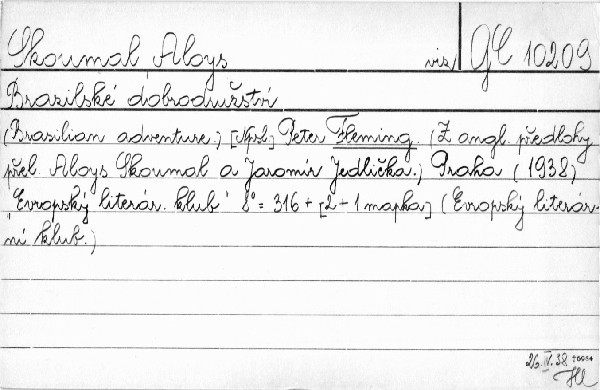 Skoumal Aloys viz/ GC 10209
Brazilské dobrodružství
(Brasilian adventure.) [Neps.] Peter Fleming. (Z angl. předlohy
přel. Aloys Skoumal a Jaromír Jedlička.) Praha (1938)
"Evropský literár. klub" 8° = 316 + [2 + 1 mapka] (Evropský literár-
ní klub.)
26. IV. 38